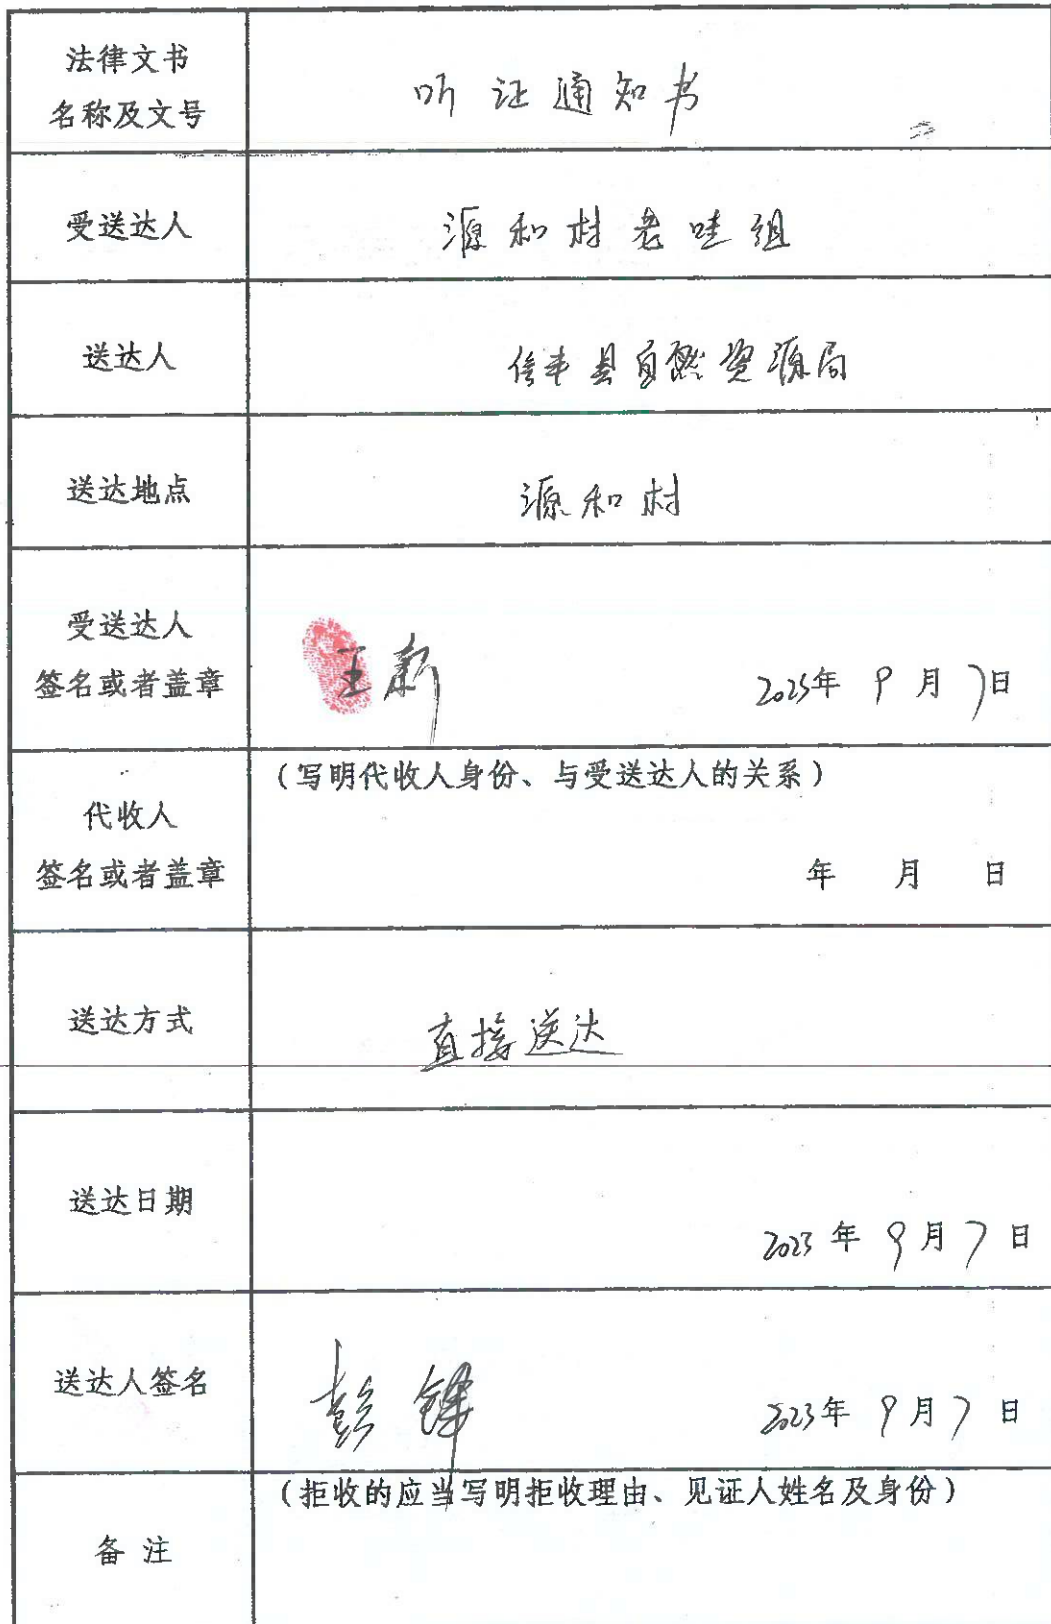 法律文书
名称及文号
听证通知书
受送达人
源和村老哇组
送达人
信丰县自然资源局
送达地点
源和村
受送达人
签名或者盖章
王新
2023年 9月 7日
(写明代收人身份、与受送达人的关系)
代收人
签名或者盖章
年 月 日
送达方式
直接送达
送达日期
2023年 9月 7日
送达人签名
彭锋
2023年 9月 7日
(拒收的应当写明拒收理由、见证人姓名及身份)
备 注